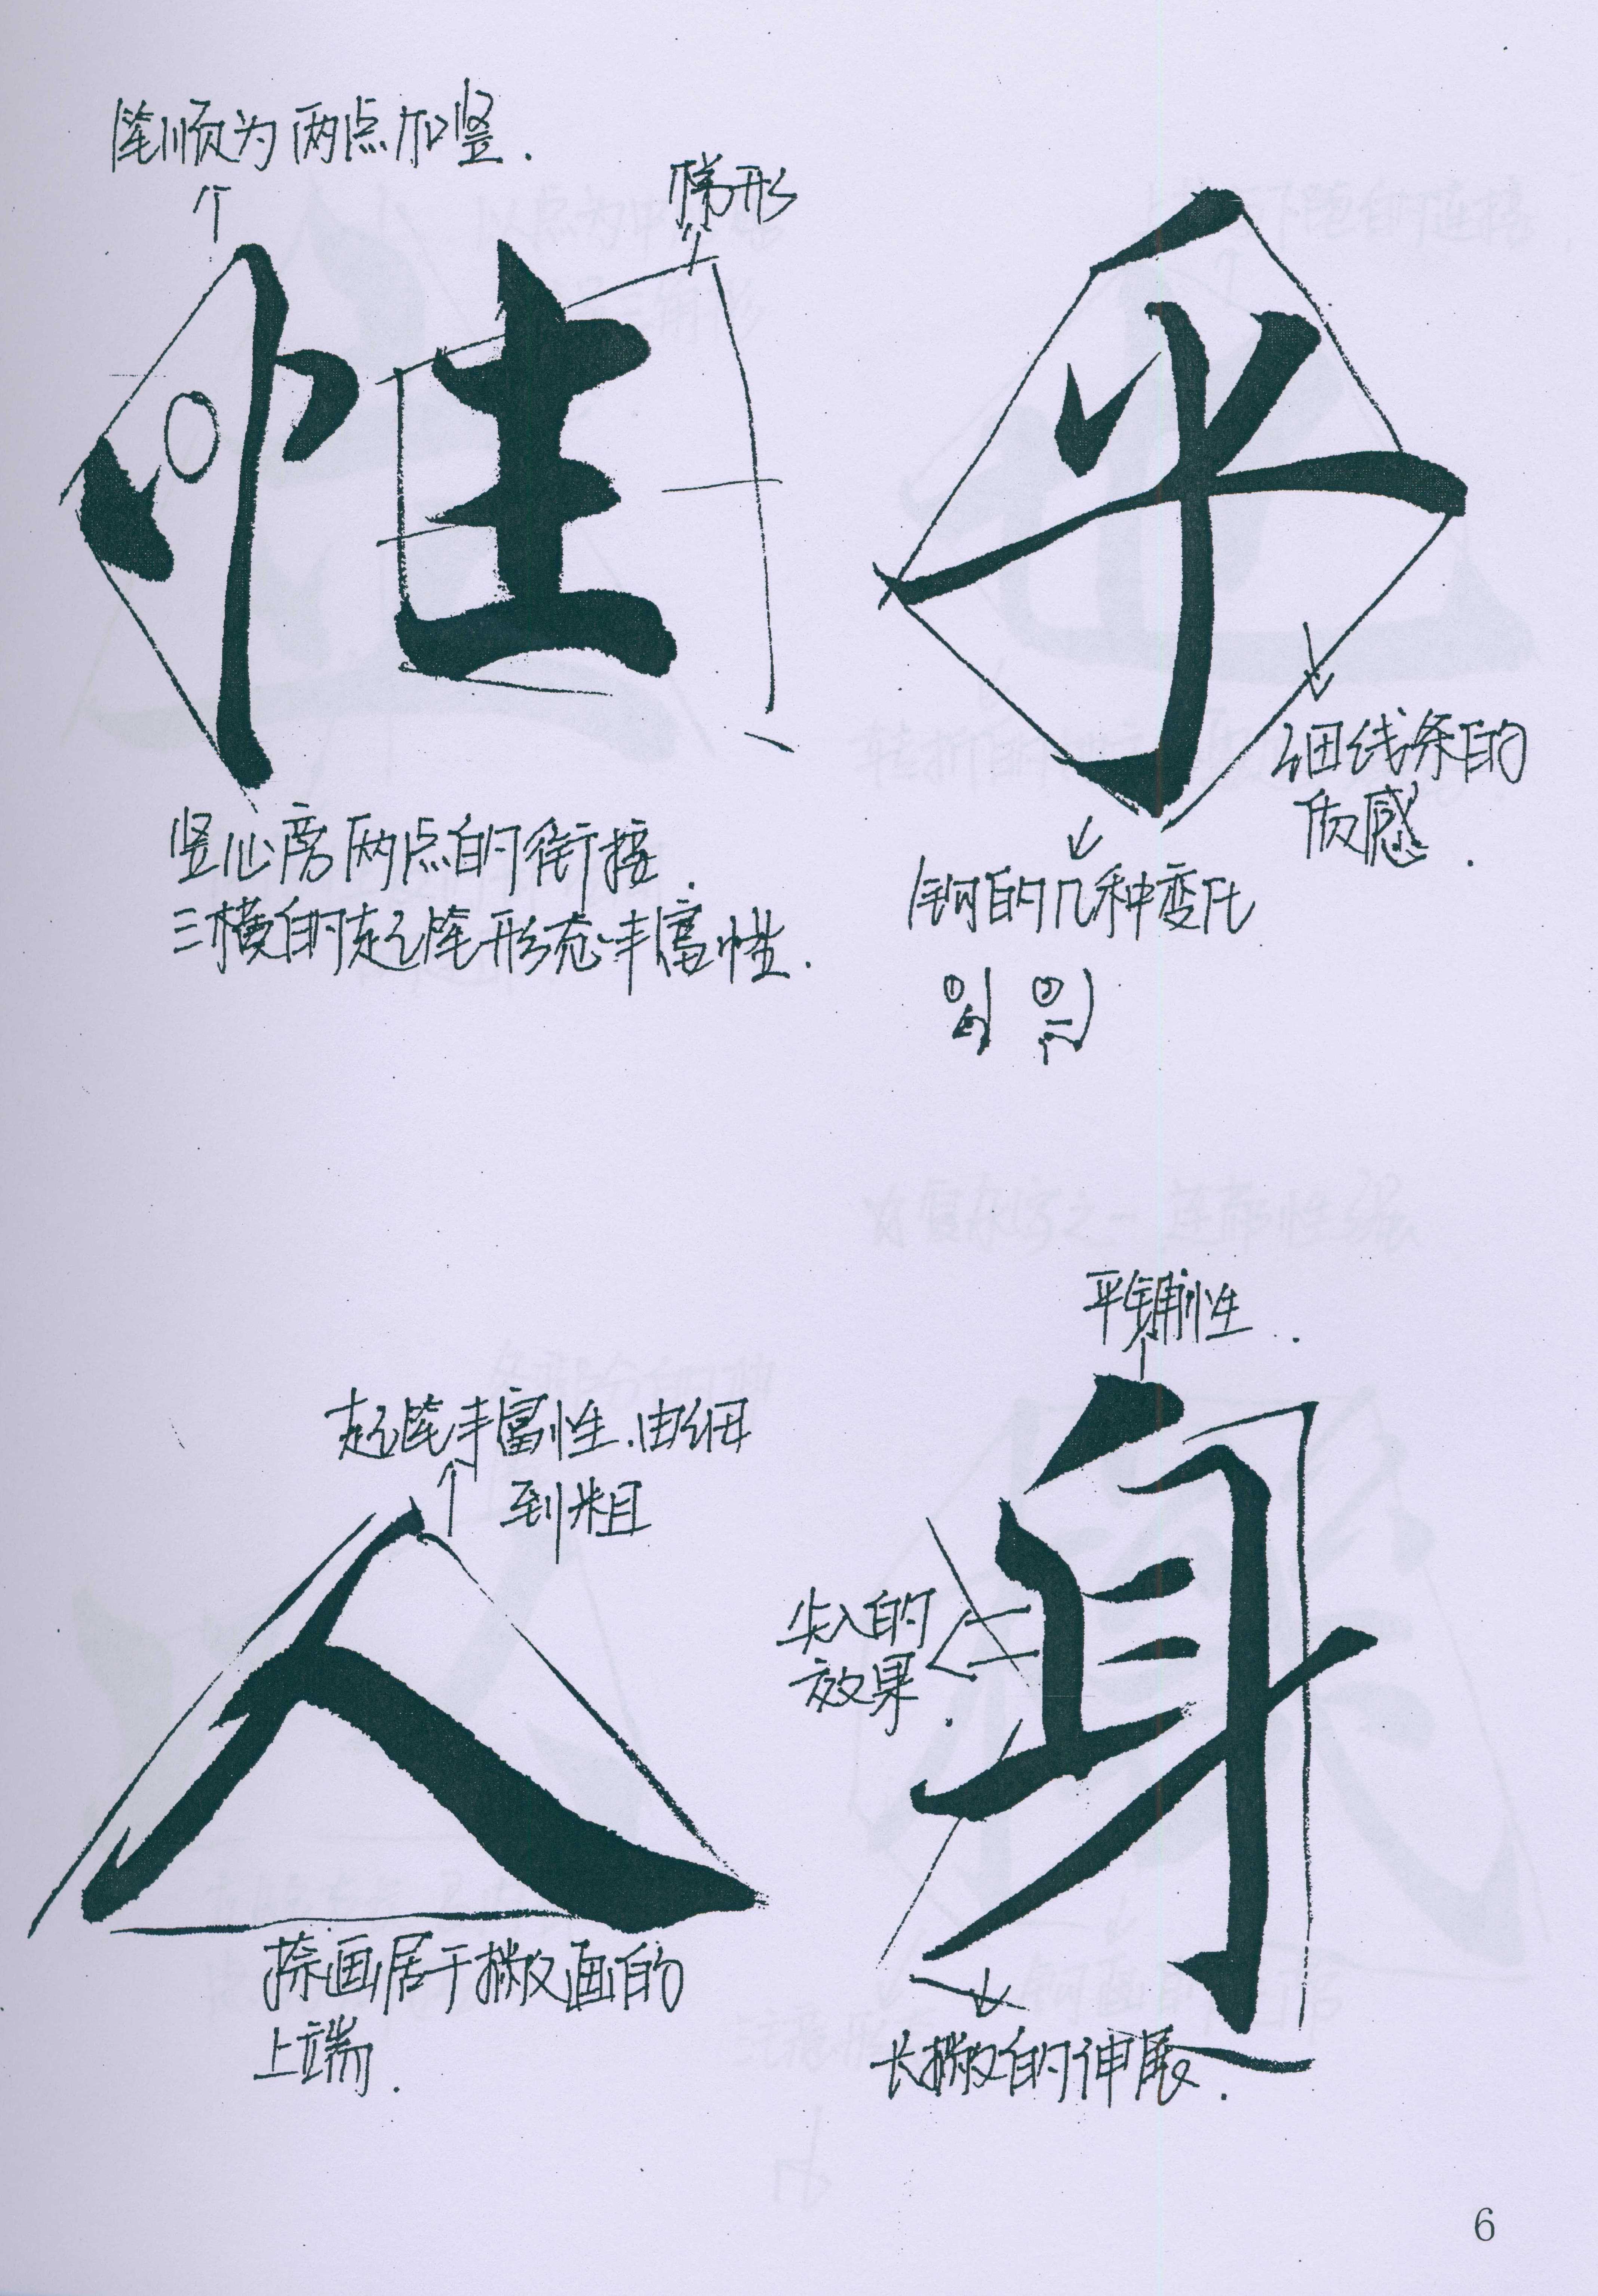 笔顺为两点加竖.
梯形
性
乎
细线条的
质感.
竖心旁两点的衔接.
三横的起笔形态丰富性.
钩的几种变化
① ②
起笔丰富性.由细
到粗
人
捺画居于撇画的
上端.
平铺性.
身
尖入的
效果.
长撇的伸展.
6